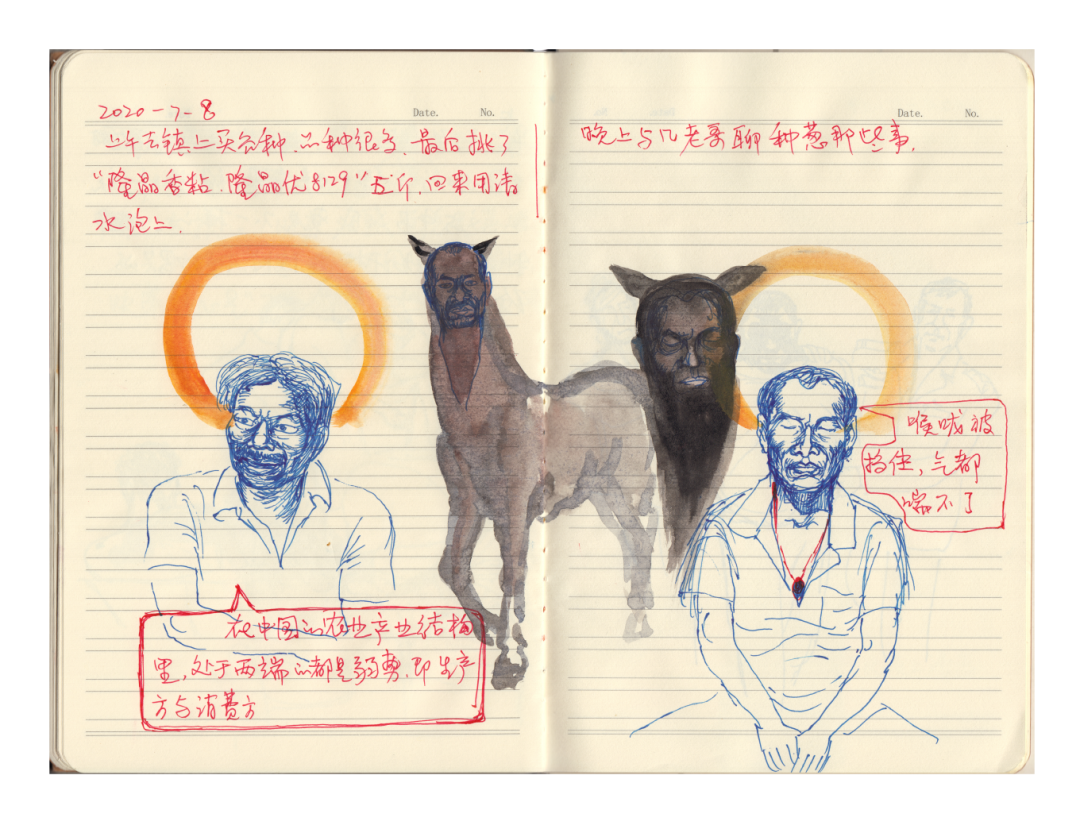 2020-7-8
Date. No.
上午去镇上买谷种.品种很多.最后挑了
“隆晶香粘.隆晶优8129”五斤.回来用清
水泡上.
在中国的农业产业结构
里,处于两端的都是弱势.即生产
方与消费方
Date. No.
晚上与几老哥聊种葱那些事.
喉咙被
挡住,气都
喘不了